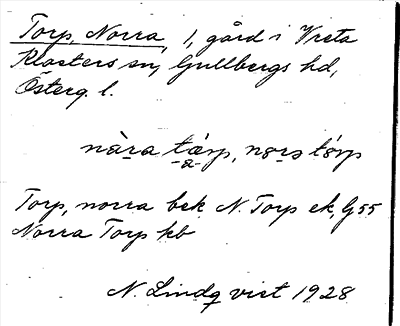 Torp, Norra, 1, gård i Vreta
Klosters sn, Gullbergs hd,
Österg. l.
nàra tǽrp, nora tǿrp
-a-
Torp, norra bek N. Torp ek, G 55
Norra Torp kb
N. Lindqvist 1928